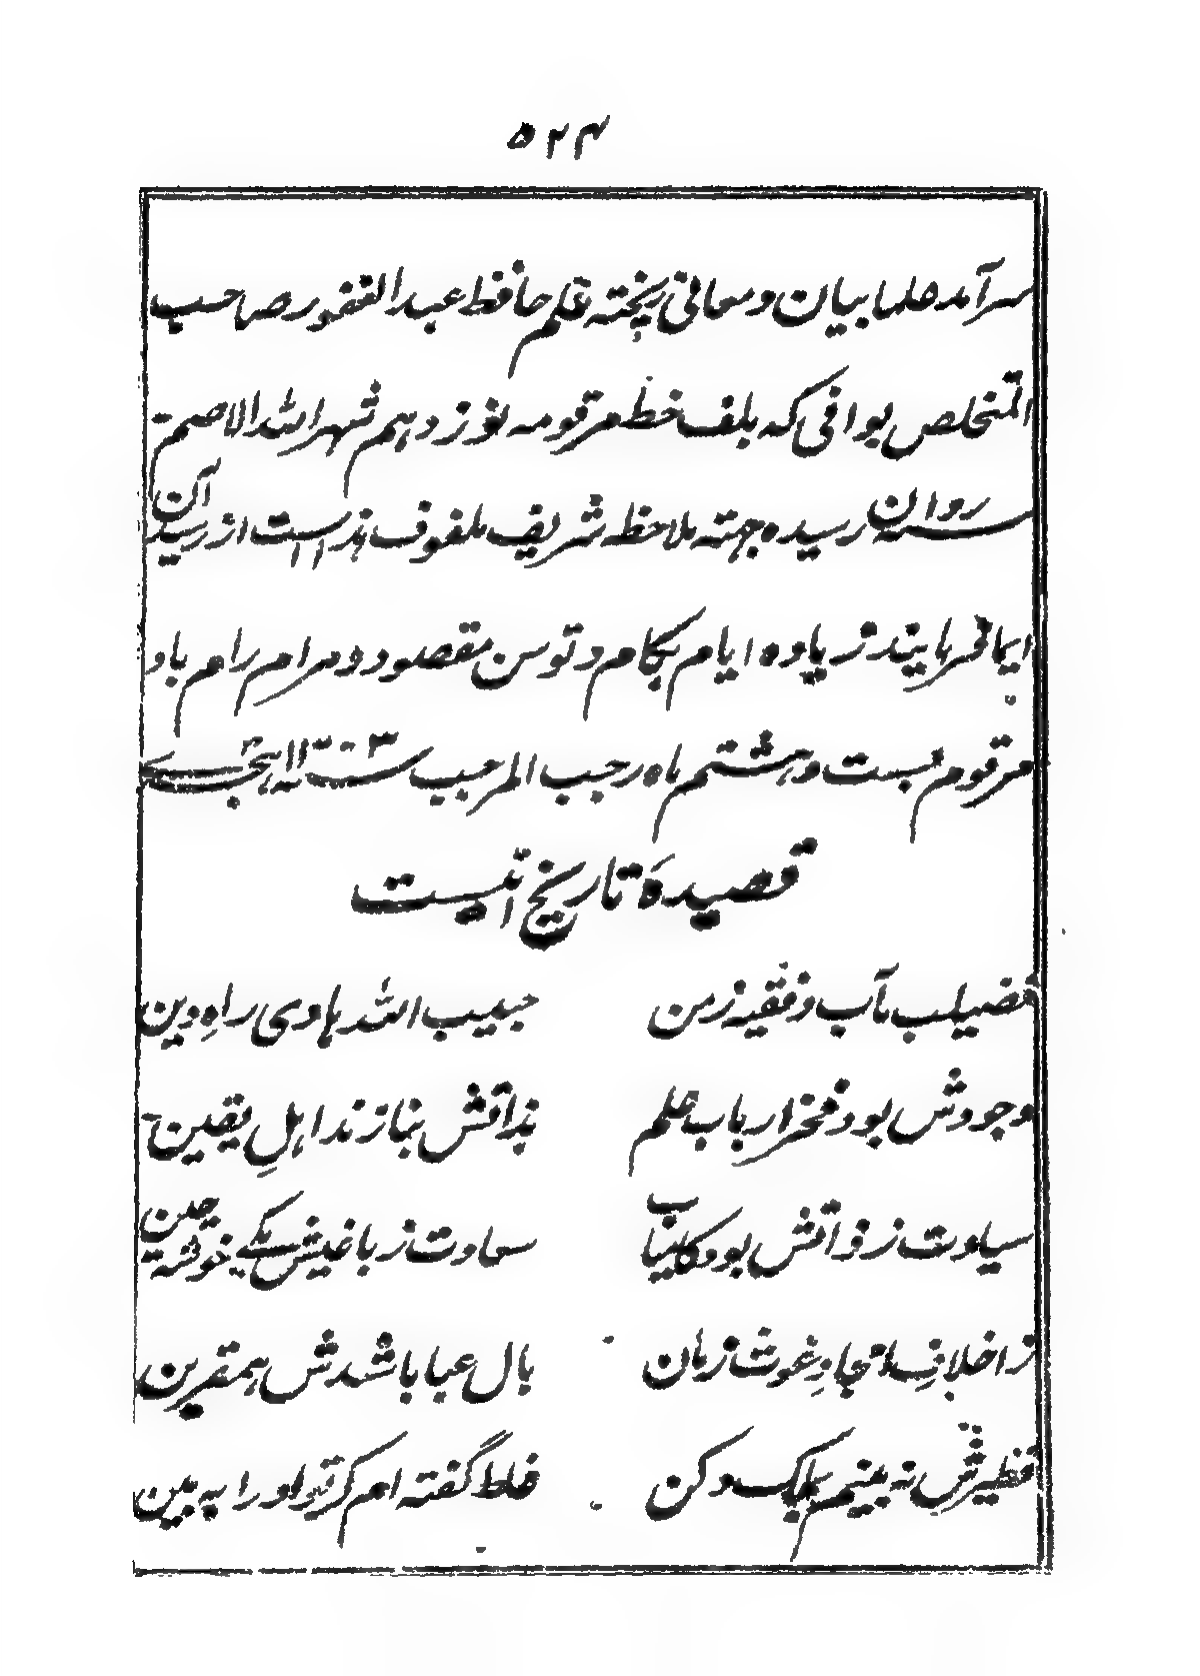 ۵۲۴
سرآمد علما بیان و معانی پخته قلم حافظ عبدالغفور صاحب
المتخلص بوافی که بلف خط مرقومه نوزدهم شهر الله الاصم
سنه روان رسیده جهته ملاحظه شریف ملفوف هذا است از رسید آن
ایما فرمایند زیاده ایام بکام و توسن مقصود و مرام رام باد
مرقوم بست و هشتم ماه رجب المرجب سنه ۱۳۰۳ هجری
قصیدهٔ تاریخ اینست
فضیلت مآب و فقیه زمن حبیب الله هادی راهِ دین
وجودش بود فخر ارباب علم بذاتش بنازند اهلِ یقین
سیادت ز ذاتش بود کامیاب سعادت ز باغیش یکے خوشه چین
ز اخلافِ امجادِ غوث زمان بال عبا باشدش همقرین
نظیرش نه بینم بملک دکن غلط گفته ام کز قو او را به بین